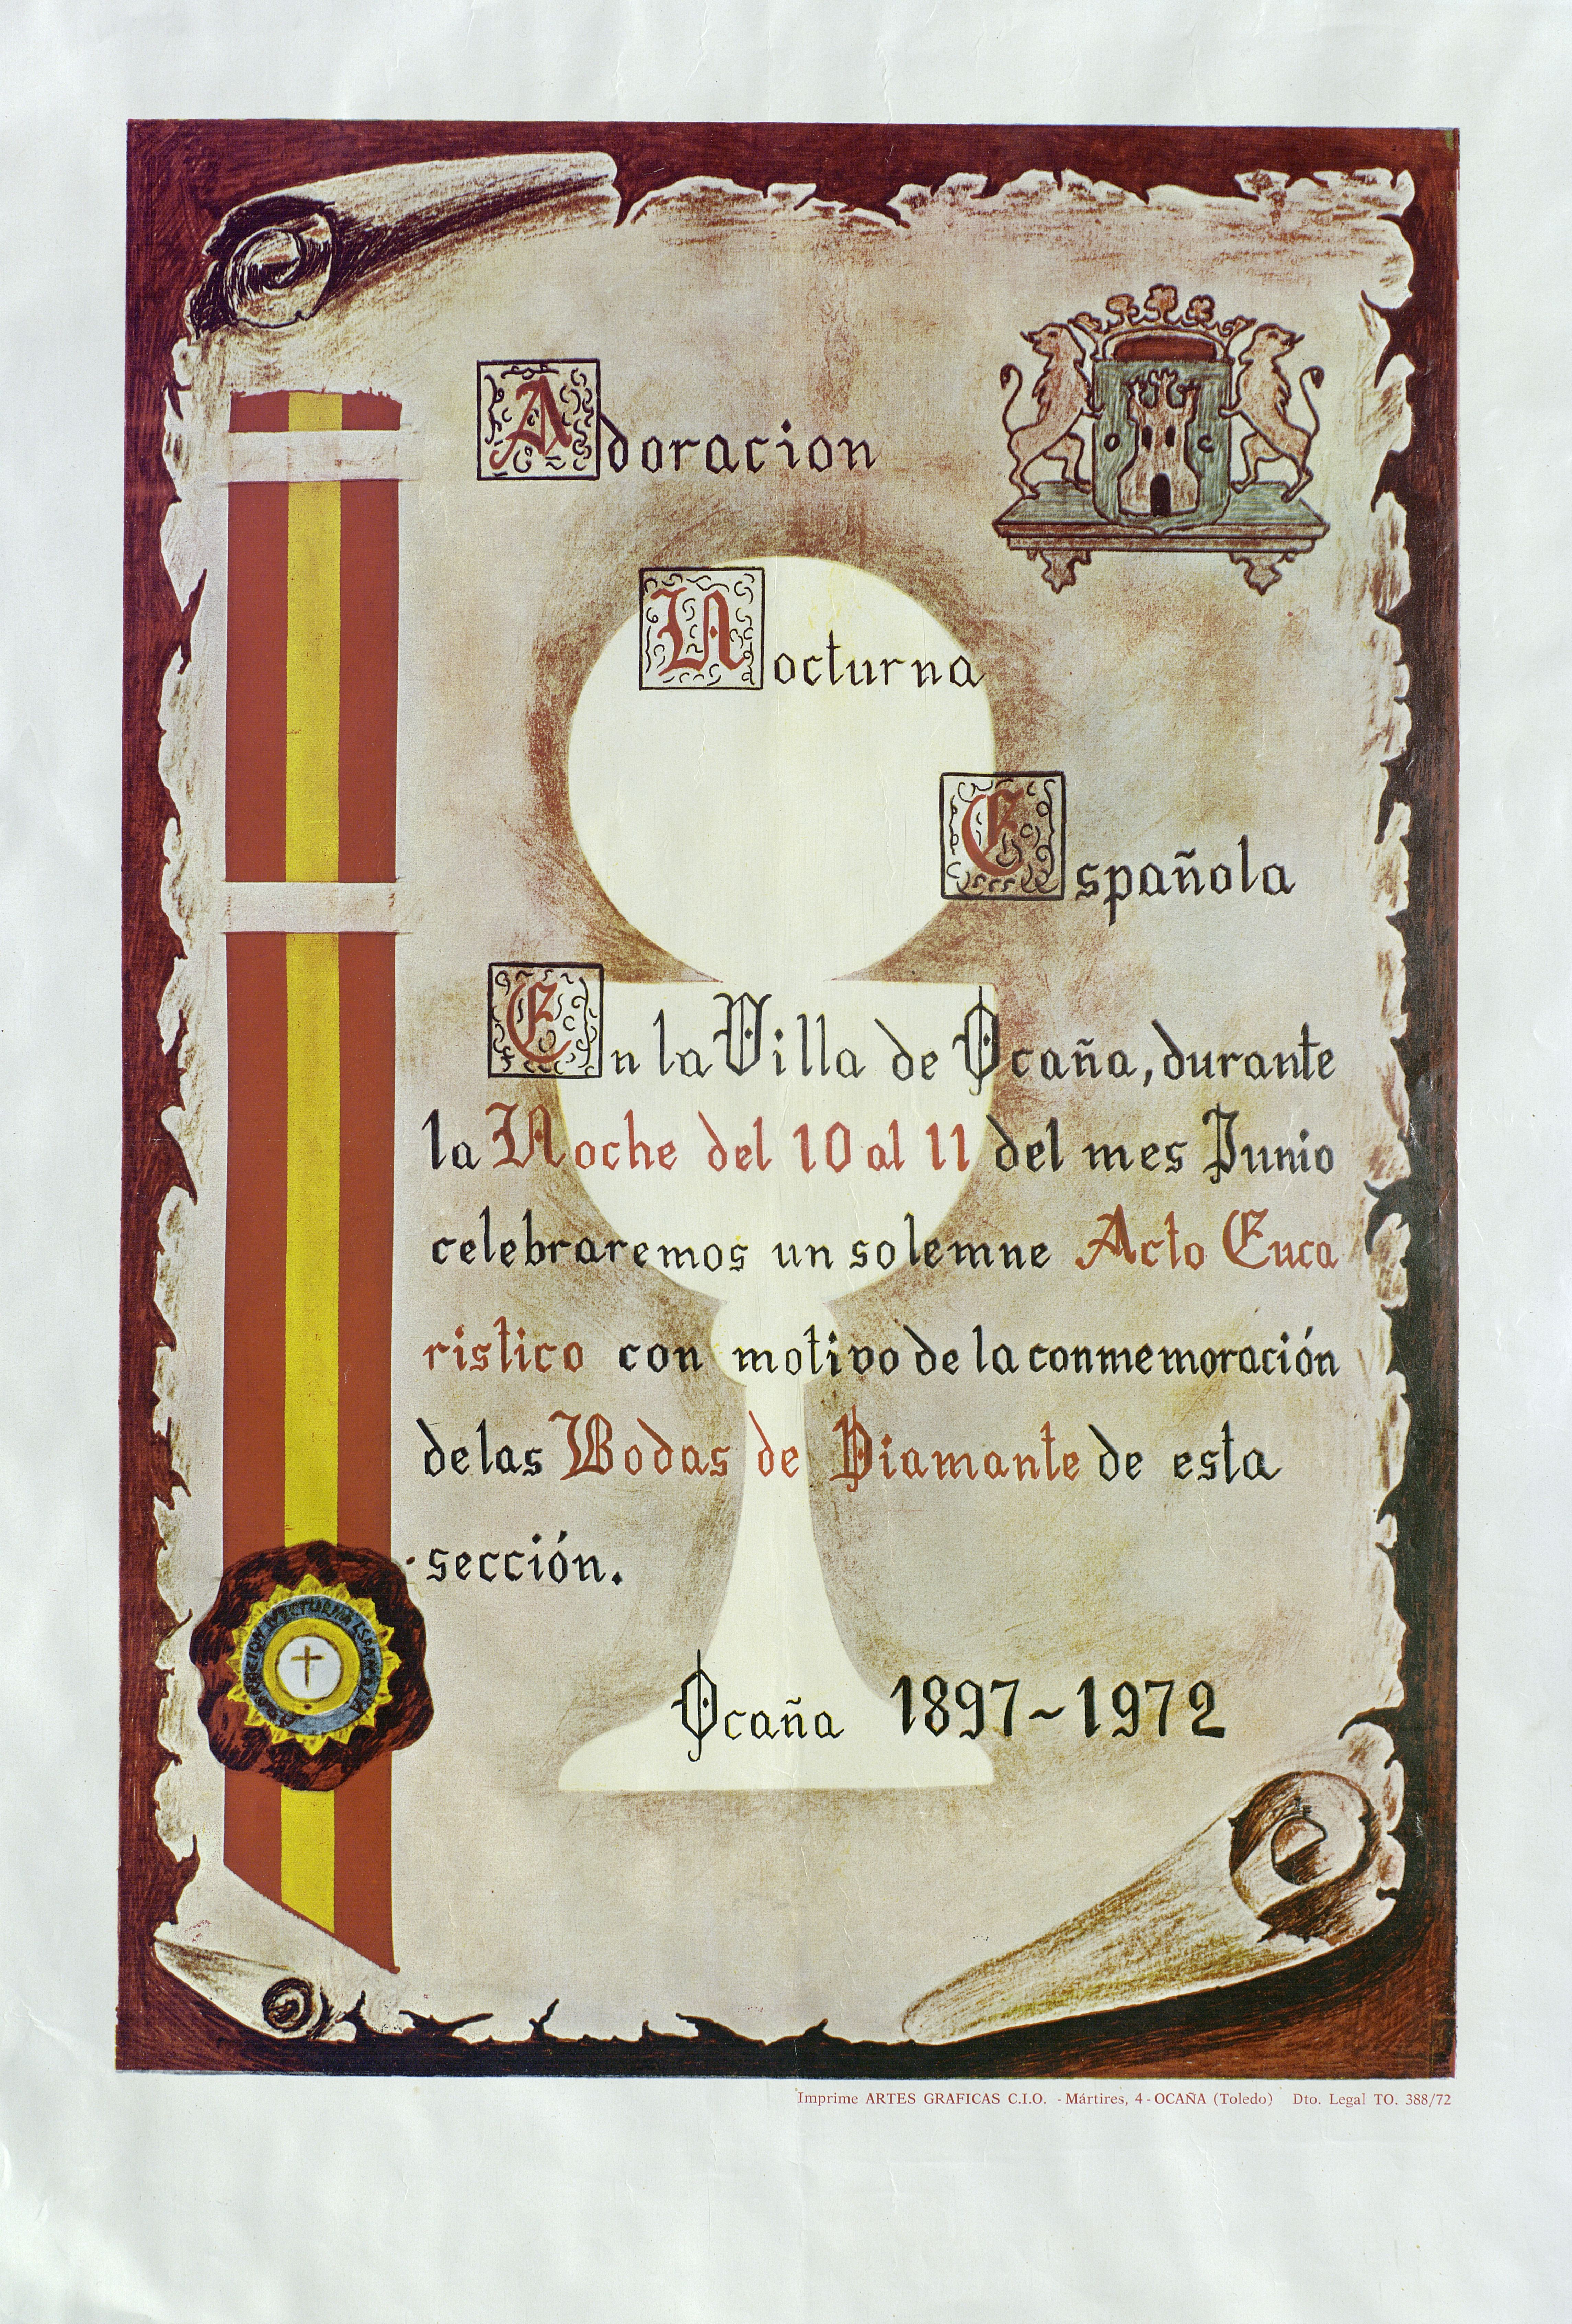 Adoracion
O C
Nocturna
Española
En la Villa de Ocaña, durante
la Noche del 10 al 11 del mes Junio
celebraremos un solemne Acto Euca
ristico con motivo de la conmemoración
de las Bodas de Diamante de esta
sección.
ADORACION NOCTURNA ESPAÑOLA
Ocaña 1897-1972
Imprime ARTES GRAFICAS C.I.O. - Mártires, 4 - OCAÑA (Toledo) Dto. Legal TO. 388/72